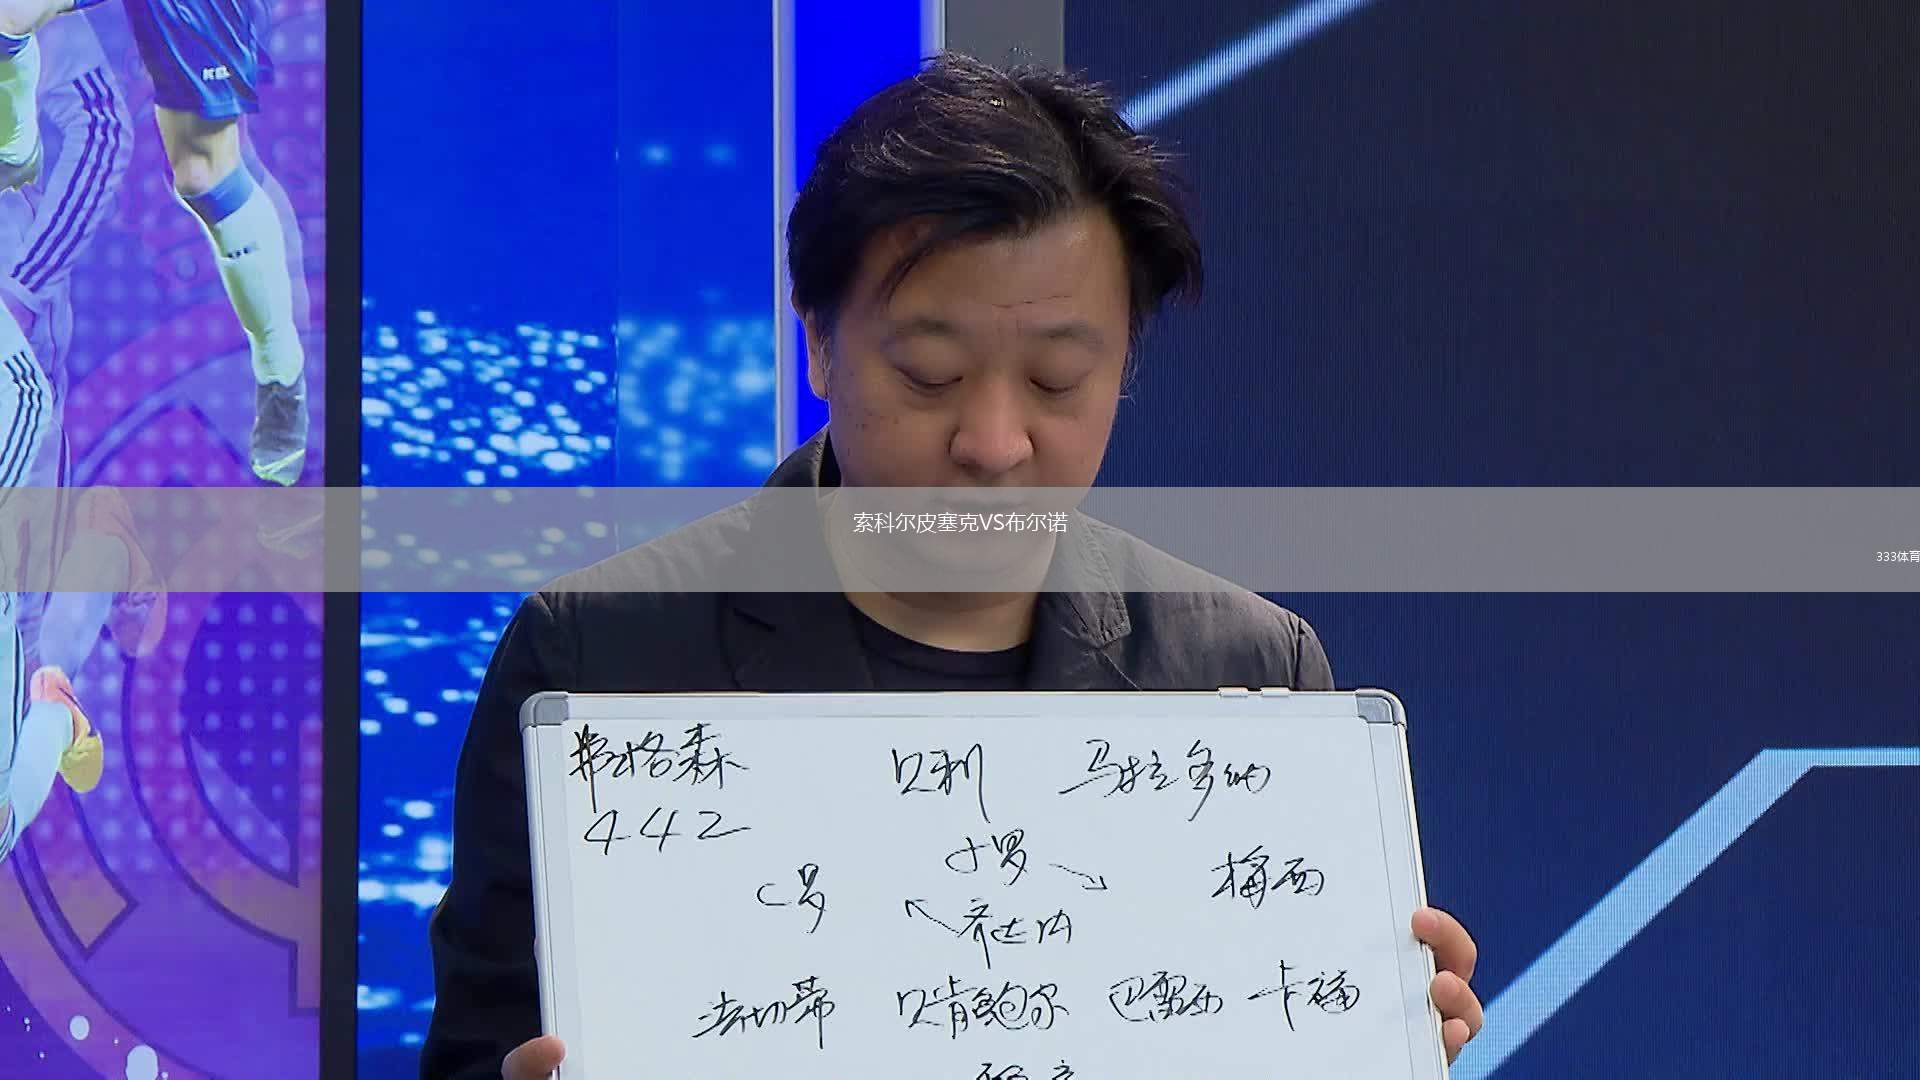 索科尔皮塞克VS布尔诺
333体育
弗格森 贝利 马拉多纳
442
小罗
C罗 梅西
齐达内
法切蒂 贝肯鲍尔 巴雷西 卡福